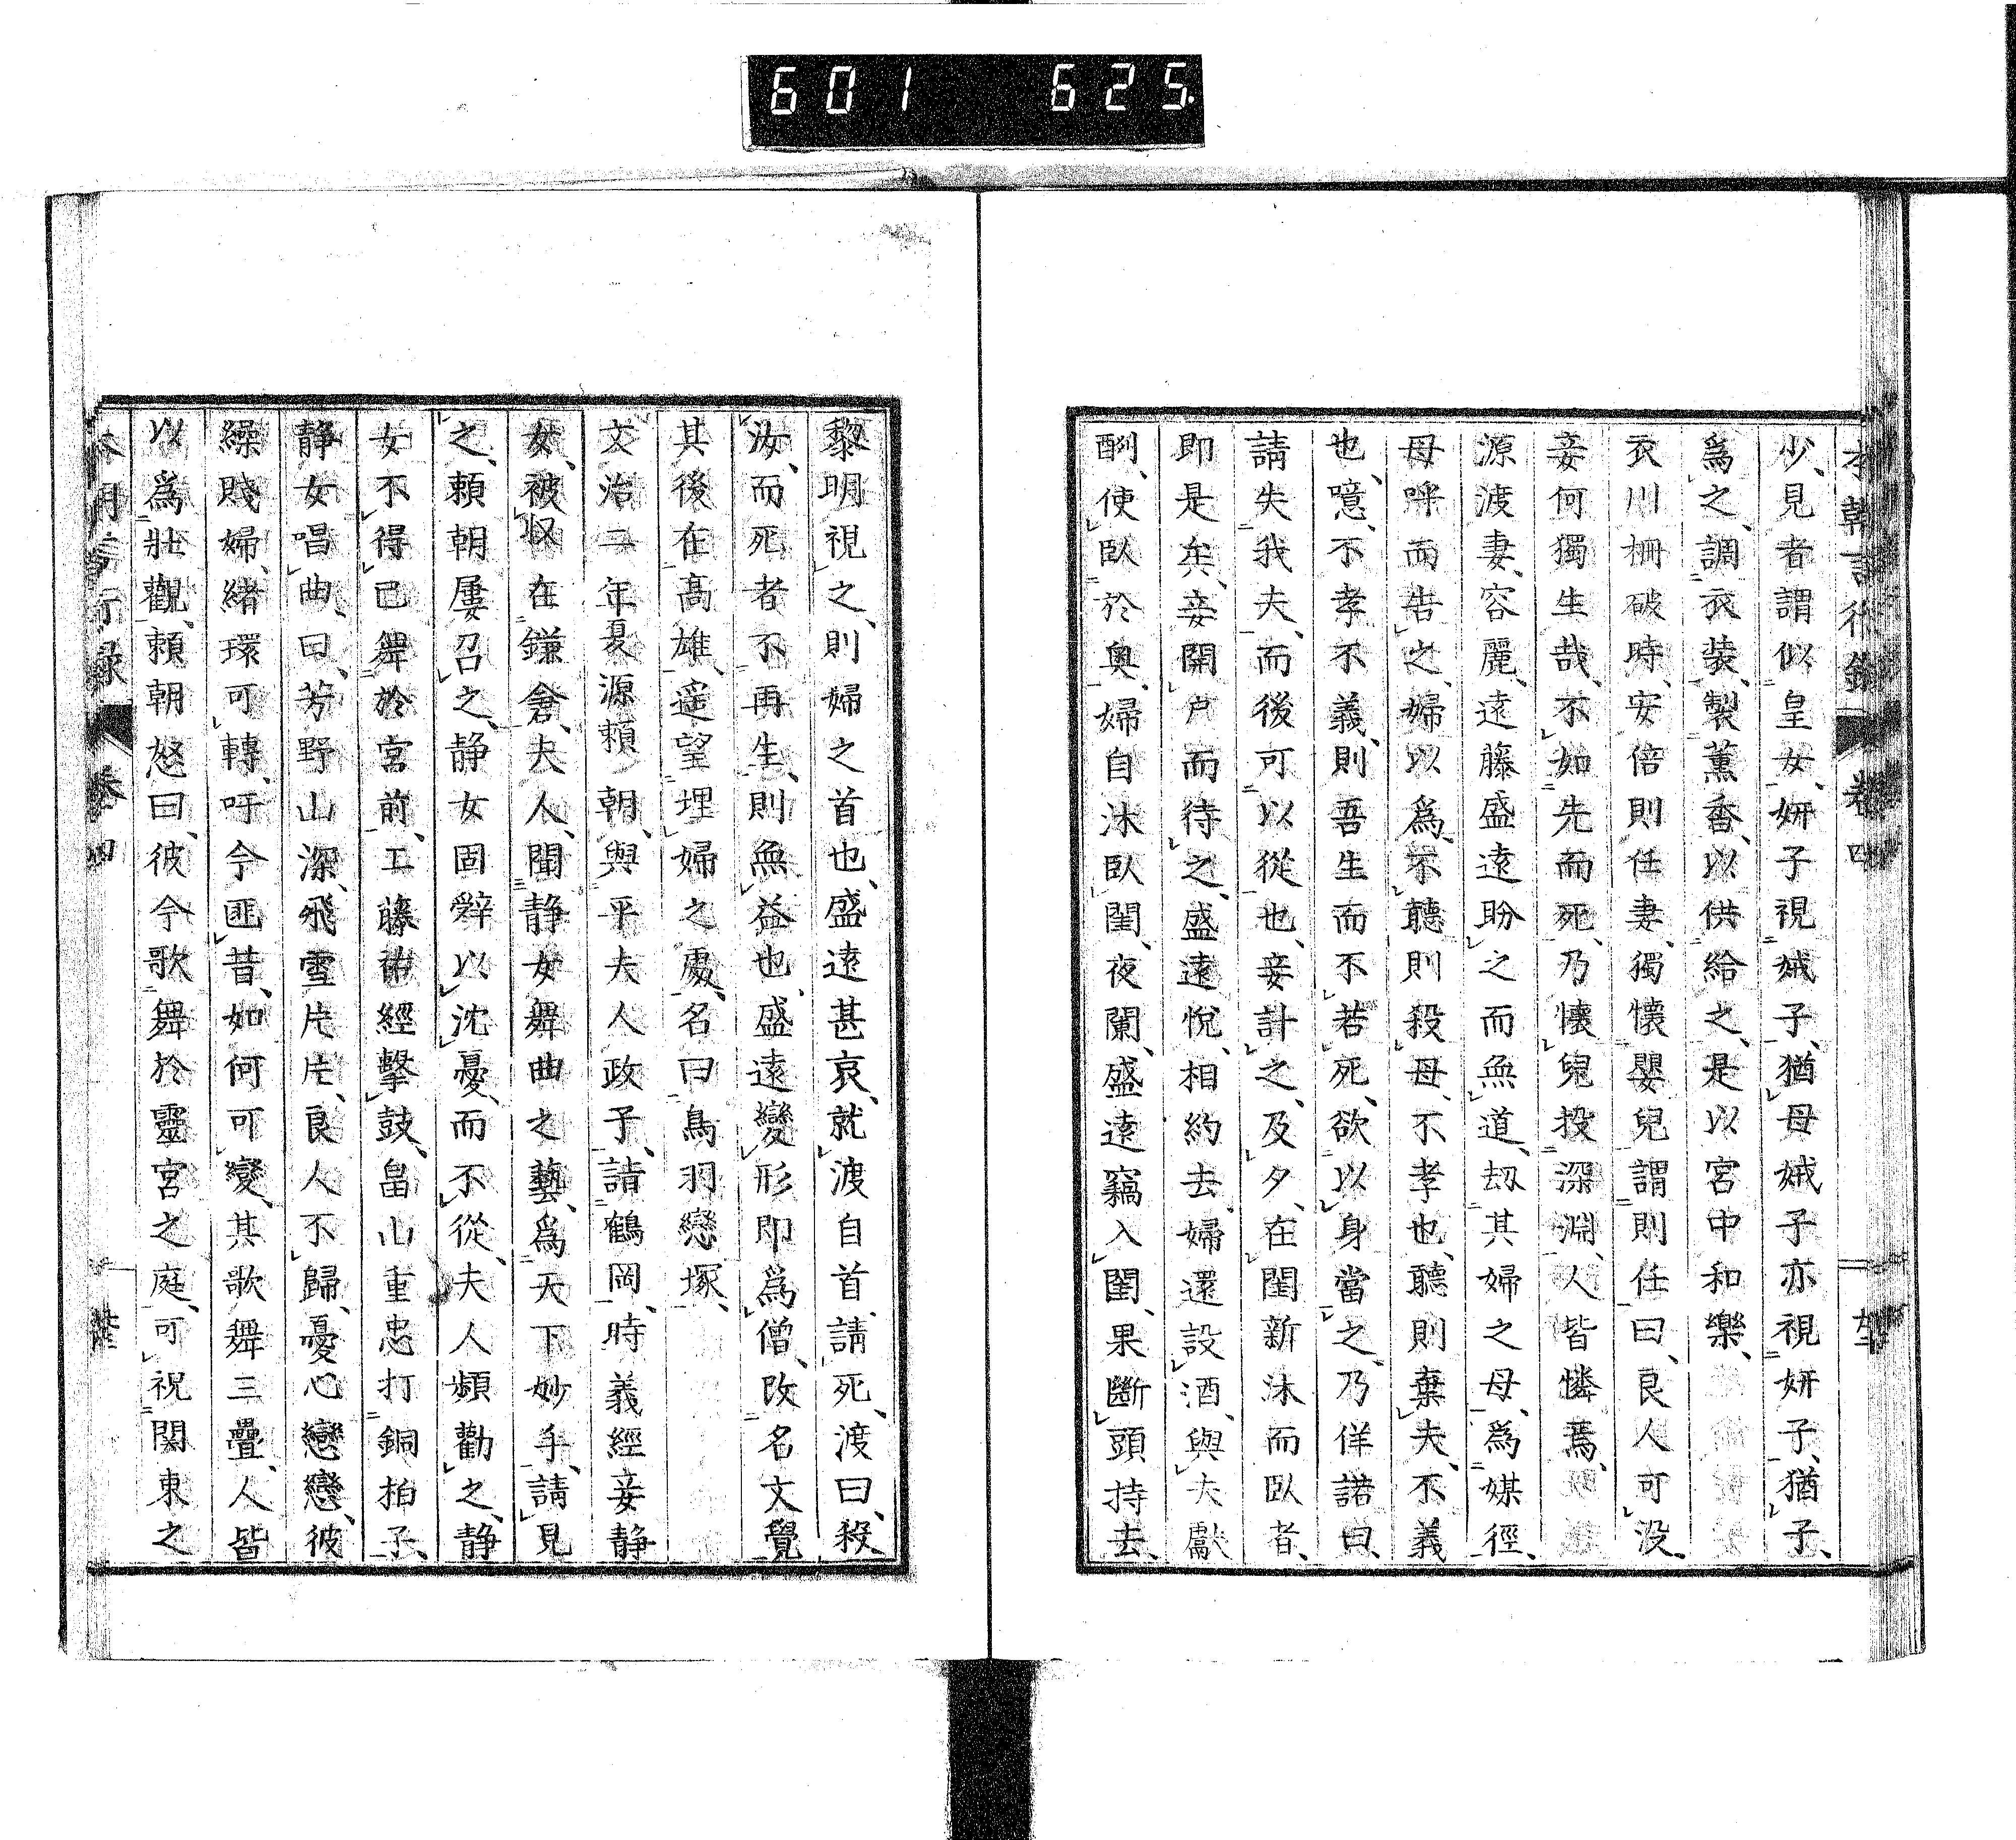 601 625
少、見者謂似皇女、妍子視娍子、猶母娍子亦視妍子、猶子、
爲之、調衣装、製薫香、以供給之、是以宮中和樂、
衣川柵破時、安倍則任妻、獨懷嬰兒謂則任曰、良人可没、
妾何獨生哉、不如先而死、乃懷兒投深淵、人皆憐焉、
源渡妻、容麗、遠藤盛遠盼之而無道、刼其婦之母、爲媒徑、
母呼而告之、婦以爲、不聽則殺母、不孝也、聽則棄夫、不義
也、噫、不孝不義、則吾生而不若死、欲以身當之、乃佯諾曰、
請失我夫、而後可以從也、妾計之、及夕、在閨新沐而臥者、
即是矣、妾開户而待之、盛遠悅、相約去、婦還設酒、與夫獻
酬、使臥於奥、婦自沐臥閨、夜闌、盛遠竊入閨、果斷頭持去、
黎明視之、則婦之首也、盛遠甚哀、就渡自首請死、渡曰、殺
汝、而死者不再生、則無益也、盛遠變形即爲僧、改名文覺
其後在高雄、遥望埋婦之處、名曰鳥羽戀塚、
文治二年夏源頼朝、與平夫人政子、請鶴岡、時義經妾静
女、被収在鎌倉、夫人、聞静女舞曲之藝、爲天下妙手、請見
之、頼朝屢召之、静女固辤以沈憂、而不從、夫人頻勸之、静
女不得已舞於宮前、工藤祐經擊鼓、畠山重忠打銅柏子、
静女唱曲、曰、芳野山深、飛雪片片、良人不歸、憂心戀戀、彼
繰賤婦、緒環可轉、吁今匪昔、如何可變、其歌舞三疊、人皆
以爲壯觀、頼朝怒曰、彼今歌舞於靈宮之庭、可祝関東之